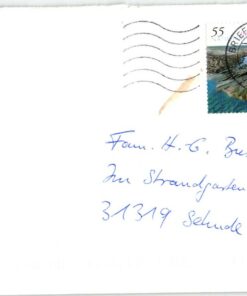 55
BRIEF
Fam. H.-G. Bre
Im Strandgarten
31319 Sehnde